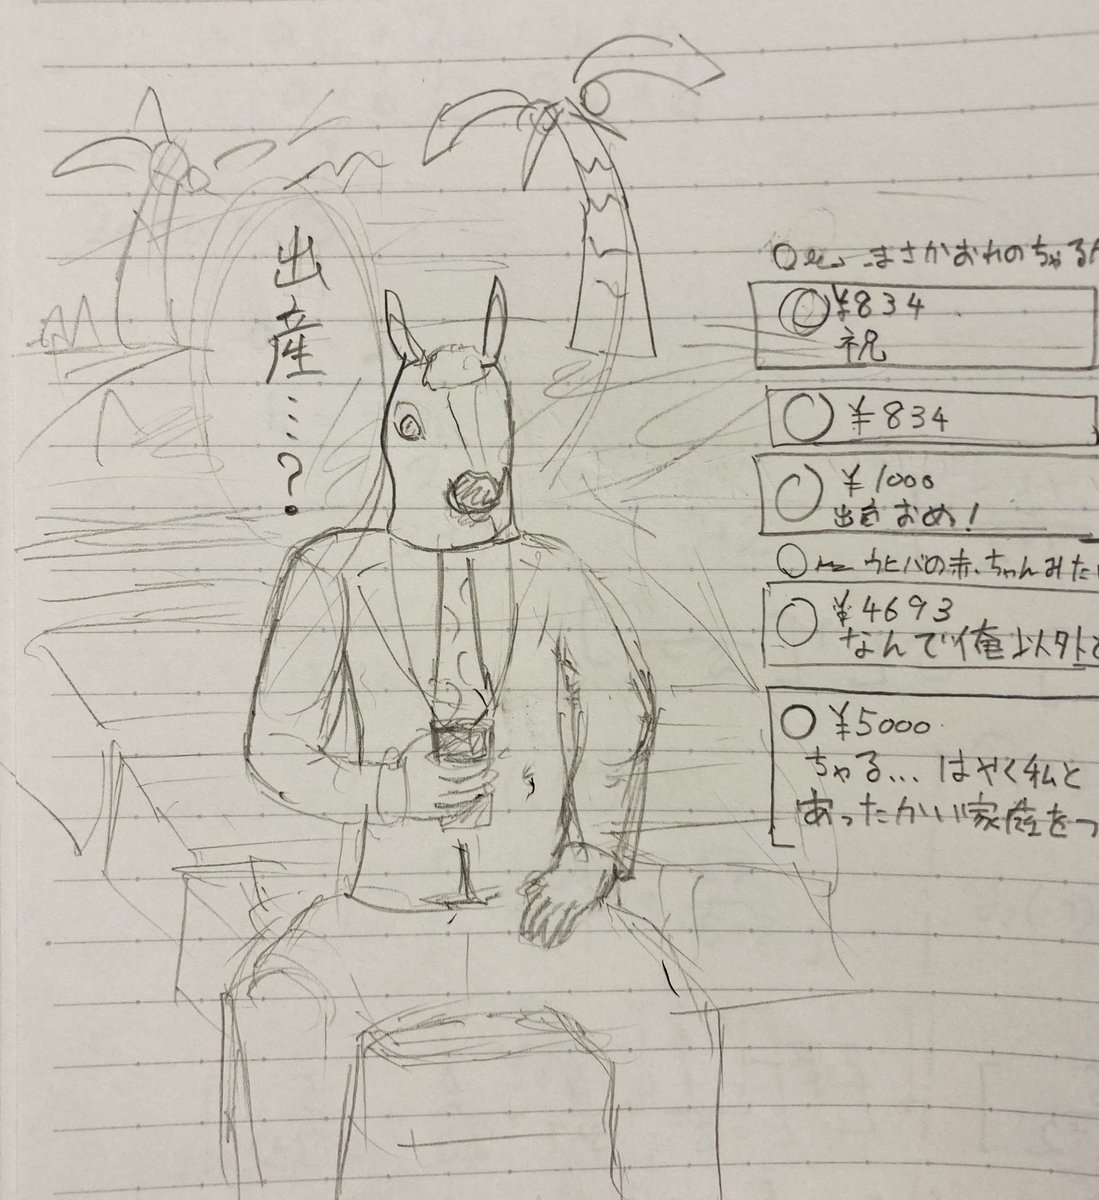 出産……?
まさかおれのちゃる
¥834
祝
¥834
¥1000
出産おめ!
ウヒバの赤ちゃんみた
¥4693
なんで俺以外と
¥5000
ちゃる…はやく私と
あったかい家庭をつ